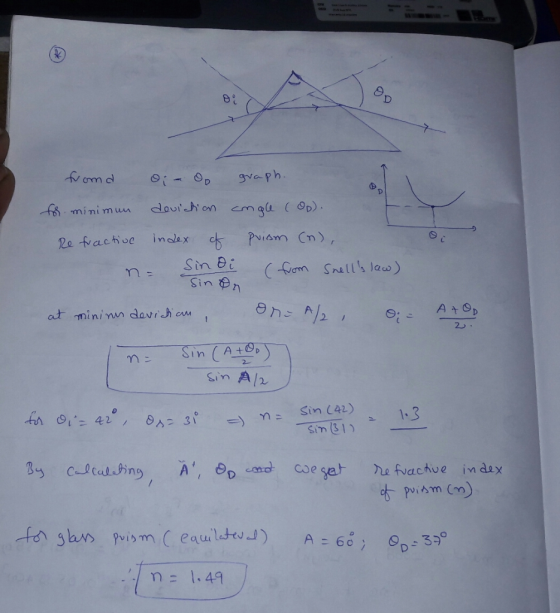 *
θi
θD
fromd θi - θD graph.
θD
θi
for minimum deviation angle (θD).
Refractive index of prism (n),
n = Sin θi / Sin θr (from Snell's law)
at minimum deviation, θr = A/2, θi = A + θD / 2.
n = Sin (A + θD / 2) / Sin A/2
for θi = 42°, θr = 31° ⇒ n = Sin(42) / Sin(31) = 1.3
By calculating, 'A', θD we get refractive index
of prism (n)
for glass prism (equilateral) A = 60°; θD = 37°
∴ n = 1.49